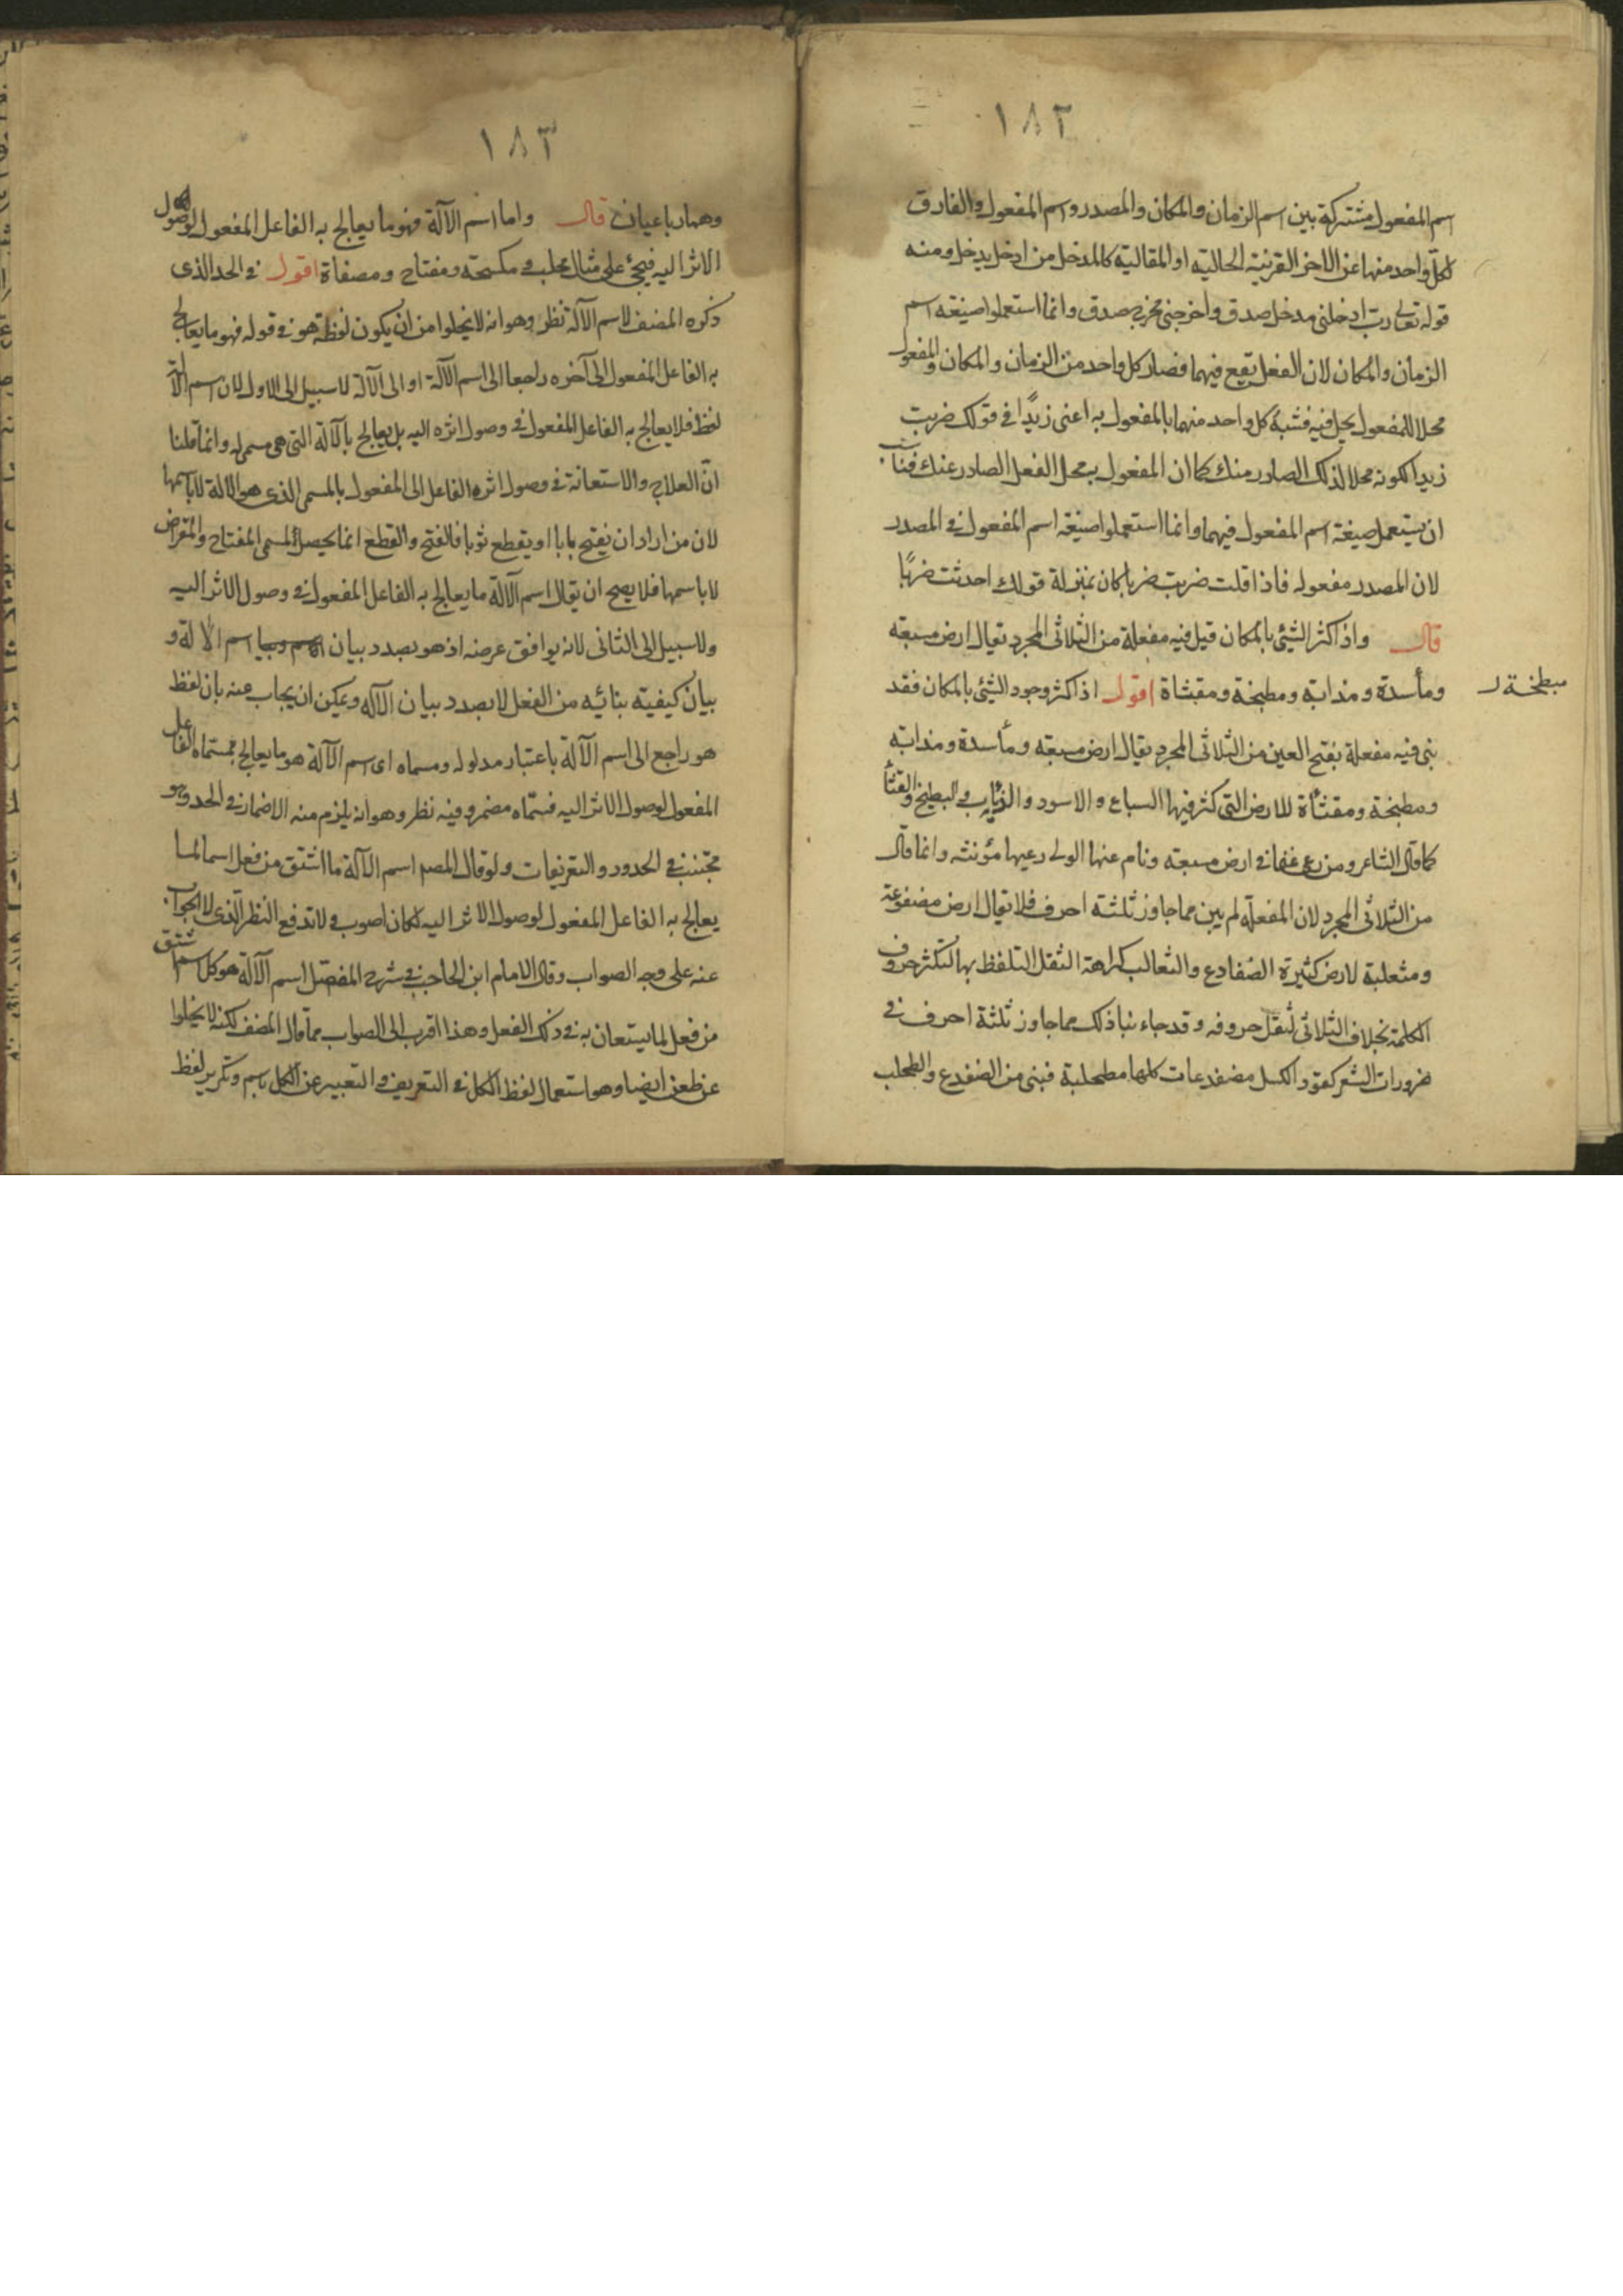 ١٨٢
اسم المفعول مشتركة بين اسم الزمان والمكان والمصدر واسم المفعول والفارق
لكل واحد منها عن الاخر القرينة الحالية او المقالية كالمدخل من ادخل يدخل ومنه
قوله تعالى رب ادخلنى مدخل صدق واخرجنى مخرج صدق وانما استعملوا صيغة اسم
الزمان والمكان لان الفعل يقع فيهما فصار كل واحد من الزمان والمكان والمفعول
محلا للمفعول يحل فيه فشبه كل واحد منهما بالمفعول به اعنى زيدًا فى قولك ضربت
زيدا لكونه محلا لذلك الصادر منك كما ان المفعول به محل الفعل الصادر عنك فناسب
ان يستعمل صيغة اسم المفعول فيهما وانما استعملوا صيغة اسم المفعول فى المصدر
لان المصدر مفعوله فاذا قلت ضربت ضربا كان بمنزلة قولك احدثت ضربًا
قال واذا كثر الشئ بالمكان قيل فيه مفعلة من الثلاثى المجرد يقال ارض مسبعة
ومأسدة ومذابة ومطبخة ومقثاة اقول اذا كثر وجود الشئ بالمكان فقد
مبطخة
بنى فيه مفعلة بفتح العين من الثلاثى المجرد يقال ارض مسبعة ومأسدة ومذابة
ومطبخة ومقثأة للارض التى كثر فيها السباع والاسود والذئاب والبطيخ والقثأ
كما قال الشاعر ومن رعى غنما فى ارض مسبعة ونام عنها الولى رعيها مؤنثه وانما قال
من الثلاثى المجرد لان المفعلة لم يبن مما جاوز ثلثة احرف فلا يقال ارض مضفعة
ومثعلبة لارض كثيرة الضفادع والثعالب كراهة الثقل التلفظ بها لتكثر حروف
الكلمة بخلاف الثلاثى لثقل حروفه وقد جاء بنا ذلك مما جاوز ثلثة احرف فى
ضرورات الشعر كقود الكسل مضفدعات كلها مطحلبة فبنى من الضفدع والطحلب
١٨٣
وهما رباعيان قال واما اسم الآلة فهو ما يعالج به الفاعل المفعول لوصول
الاثر اليه فيجئ على مثال محلب ومكسحة ومفتاح ومصفاة اقول فى الحد الذى
ذكره المصنف لاسم الآلة نظر وهو انه لا يخلوا من ان يكون لفظة هو فى قوله فهو ما يعالج
به الفاعل المفعول الى آخره راجعا الى اسم الآلة او الى الآلة لا سبيل الى الاول لان اسم الآلة
لفظ فلا يعالج به الفاعل المفعول فى وصول اثره اليه بل يعالج بالآلة التى هى مسمى له وانما قلنا
ان العلاج والاستعانة فى وصول اثر الفاعل الى المفعول بالمسمى الذى هو الآلة لا باسمها
لان من اراد ان يفتح بابا او يقطع ثوبا فالفتح والقطع انما يحصل المسمى المفتاح والمقراض
لا باسمها فلا يصح ان يقال اسم الآلة ما يعالج به الفاعل المفعول فى وصول الاثر اليه
ولا سبيل الى الثانى لانه يوافق غرضه اذ هو بصدد بيان اسم الآلة و
بيان كيفية بنائه من الفعل لا بصدد بيان الآلة ويمكن ان يجاب عنه بان لفظ
هو راجع الى اسم الآلة باعتبار مدلوله ومسماه اى اسم الآلة هو ما يعالج بمسماه الفاعل
المفعول لوصول الاثر اليه فسماه مضمر وفيه نظر وهو انه يلزم منه الاضمار فى الحد وهو
مجتنب فى الحدود والتعريفات ولو قال المصـ اسم الآلة ما اشتق من فعل اسما لما
يعالج به الفاعل المفعول لوصول الاثر اليه لكان اصوب ولاندفع النظر الذى لا الجواب
عنه على وجه الصواب وقال الامام ابن الحاجب فى شرح المفصل اسم الآلة هو كل اسم اشتق
من فعل لما يستعان به فى ذلك الفعل وهذا اقرب الى الصواب مما قال المصنف لكنه لا يخلوا
عن طعن ايضا وهو استعمال لفظ الكل فى التعريف والتعبير عن الكل باسم وتكرير لفظ